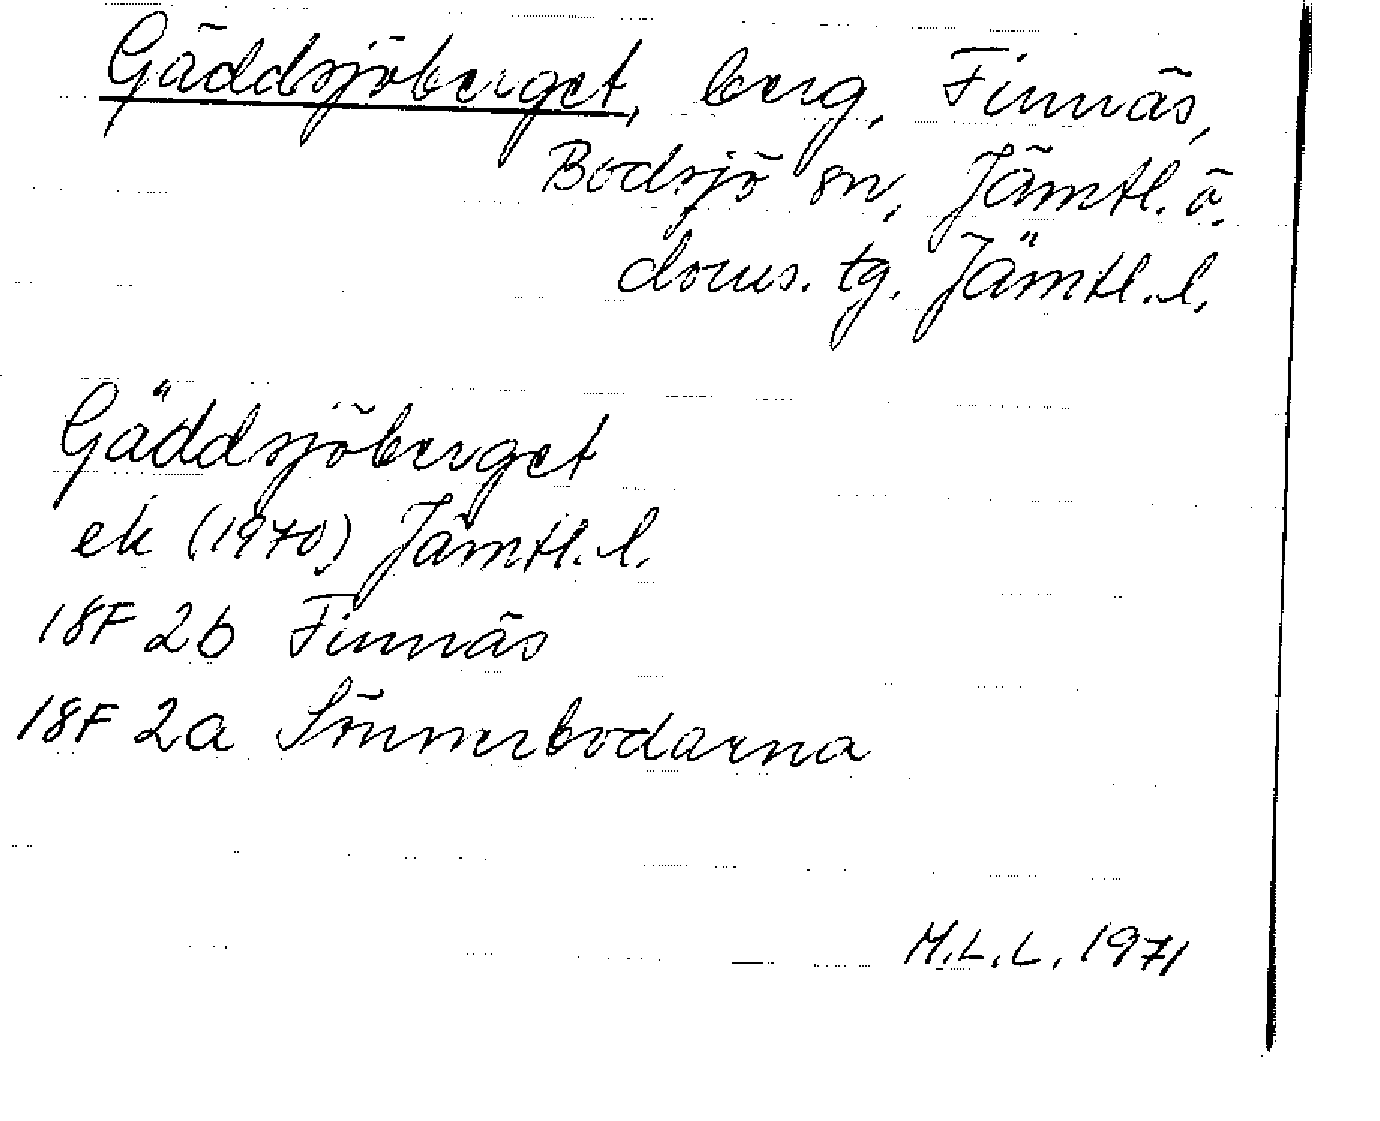 Gäddsjöberget, berg, Finnäs,
Bodsjö sn, Jämtl. ö.
doms. tg. Jämtl. l.
Gäddsjöberget
ek (1970) Jämtl. l.
18F 2b Finnäs
18F 2a Sönnerbodarna
M.L.L. 1971